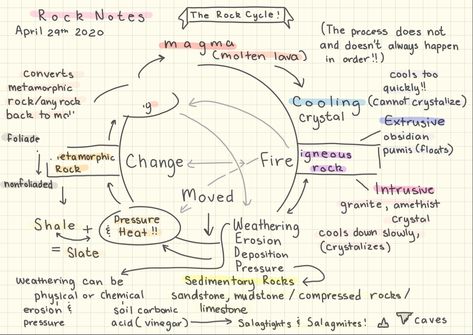 Rock Notes
April 29th 2020
The Rock Cycle!
magma
(molten lava)
(The process does not
and doesn't always happen
in order!!)
Converts
metamorphic
rock/any rock
back to
cools too
quickly!!
(cannot crystalize)
Cooling
Crystal
Extrusive
obsidian
pumis (floats)
foliade
nonfoliaded
etamorphic
Rock
Change
Fire
igneous
rock
Intrusive
granite, amethist
crystal
cools down slowly,
(crystalizes)
Moved
Shale +
= Slate
Pressure
& Heat!!
Weathering
Erosion
Deposition
Pressure
Sedimentary Rocks
sandstone, mudstone / compressed rocks /
limestone
weathering can be
physical or chemical
erosion &
pressure
soil carbonic
acid (vinegar)
Salagtights & Salagmites!
caves